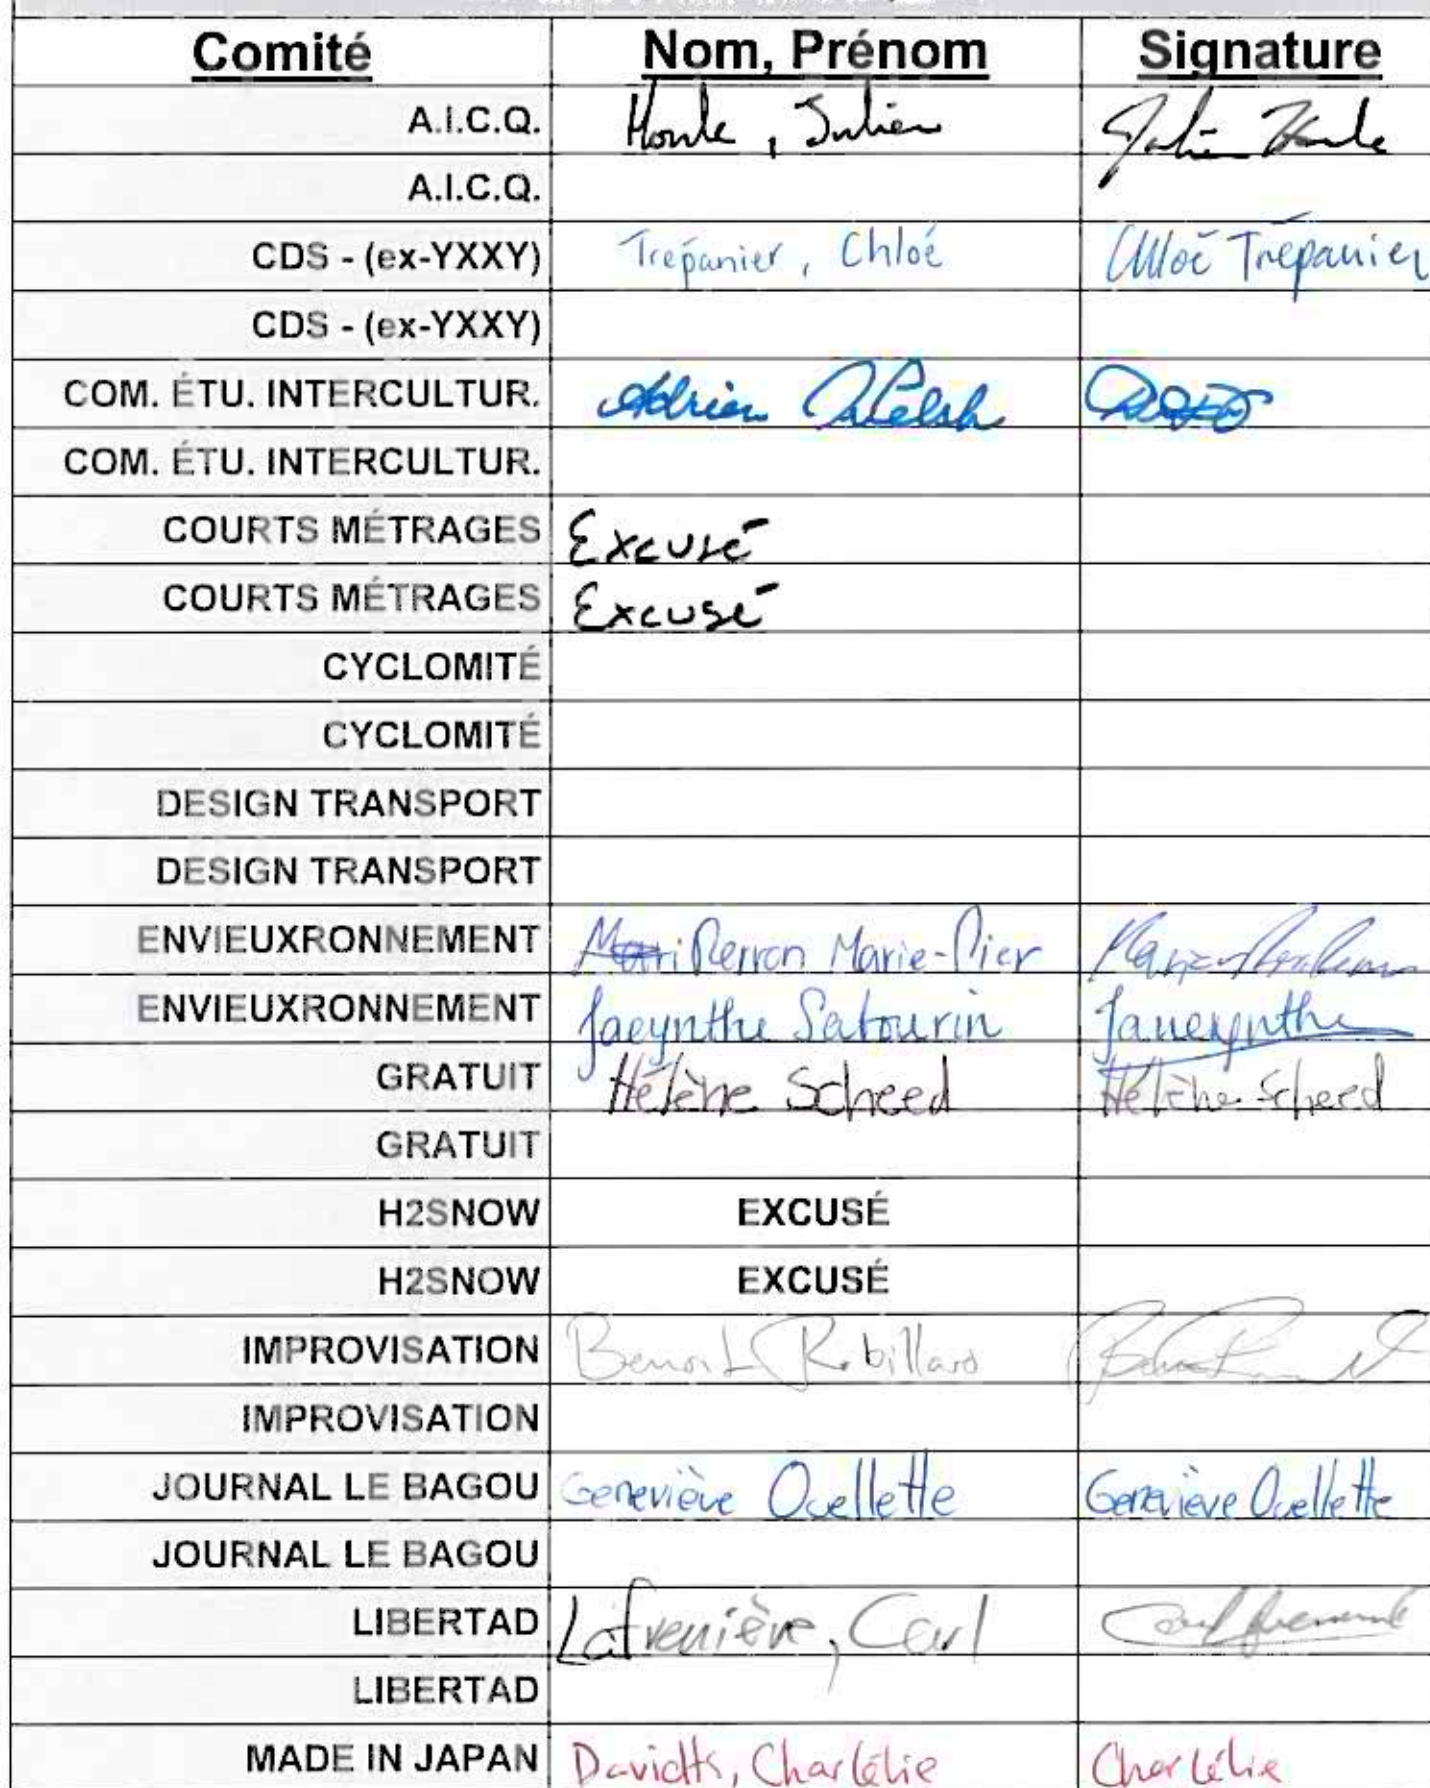 Comité Nom, Prénom Signature
A.I.C.Q. Houle, Julien Julien Houle
A.I.C.Q.
CDS - (ex-YXXY) Trépanier, Chloé Chloé Trépanier
CDS - (ex-YXXY)
COM. ÉTU. INTERCULTUR. Adrien Welsh
COM. ÉTU. INTERCULTUR.
COURTS MÉTRAGES Excusé
COURTS MÉTRAGES Excusé
CYCLOMITÉ
CYCLOMITÉ
DESIGN TRANSPORT
DESIGN TRANSPORT
ENVIEUXRONNEMENT Perron Marie-Pier
ENVIEUXRONNEMENT Jacynthe Satourin
GRATUIT Hélène Scheed Hélène Scheed
GRATUIT
H2SNOW EXCUSÉ
H2SNOW EXCUSÉ
IMPROVISATION Benoit Robillard
IMPROVISATION
JOURNAL LE BAGOU Geneviève Ouellette Geneviève Ouellette
JOURNAL LE BAGOU
LIBERTAD Lafrenière, Carl
LIBERTAD
MADE IN JAPAN Davidts, Charlélie Charlélie